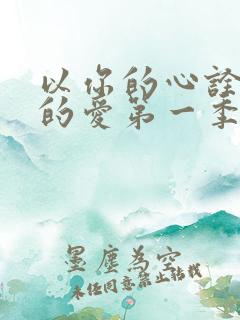 以你的心诠
的爱第一季
墨尘为空
未经同意禁止转载